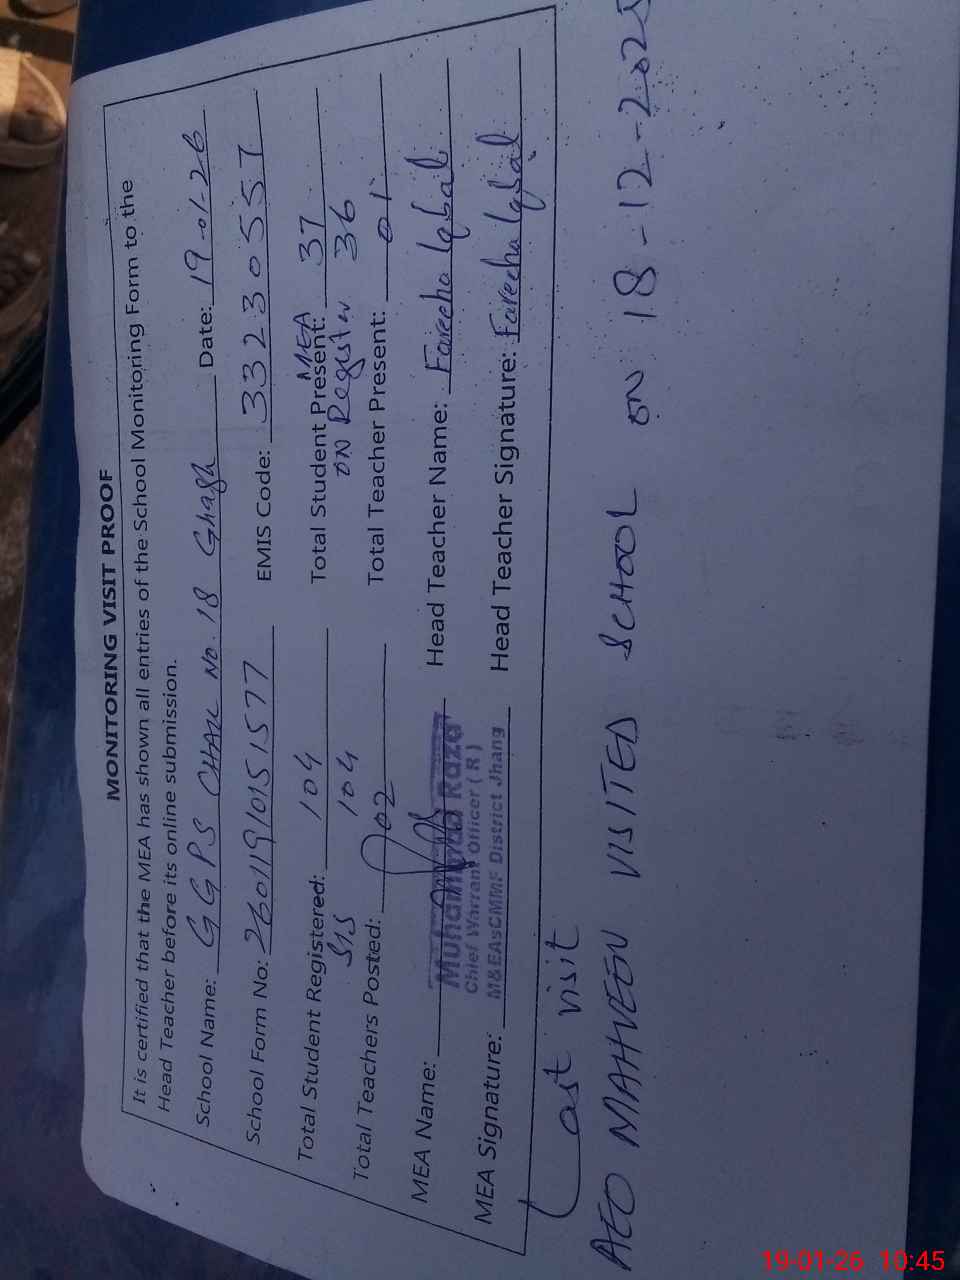 MONITORING VISIT PROOF
It is certified that the MEA has shown all entries of the School Monitoring Form to the
Head Teacher before its online submission.
School Name: GGPS CHAK NO. 18 Ghagh Date: 19-01-26
School Form No: 26011910151577 EMIS Code: 33230557
Total Student Registered: 104 Total Student Present: MEA 37
SIS 104 ON Register 36
Total Teachers Posted: 02 Total Teacher Present: 01
MEA Name: Muhammad Raza Head Teacher Name: Fareeha Iqbal
Chief Warrant Officer ( R )
MEA Signature: M&EAsCMMF District Jhang Head Teacher Signature: Fareeha Iqbal
Last visit
AEO MAHVEEN VISITED SCHOOL ON 18-12-2025
19-01-26 10:45